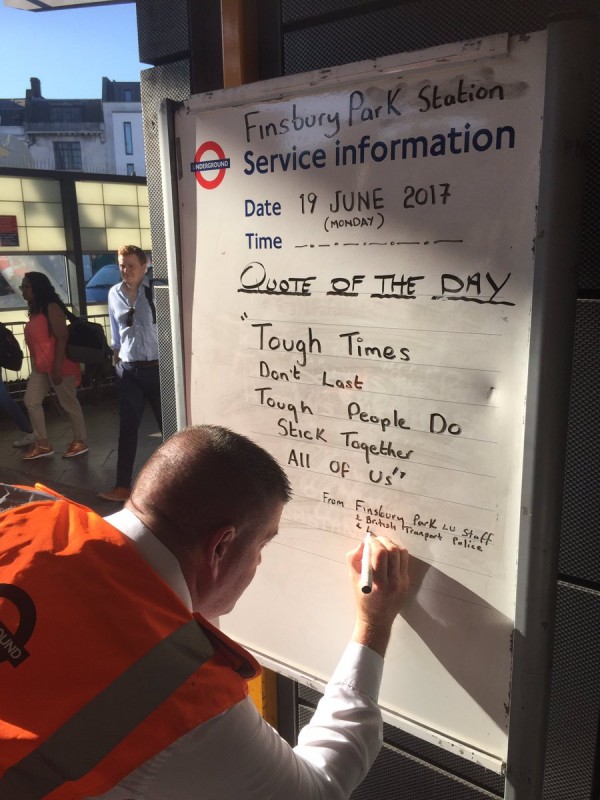 Finsbury Park Station
UNDERGROUND
Service information
Date 19 JUNE 2017
(MONDAY)
Time -·-·-·-·-·-
QUOTE OF THE DAY
"Tough Times
Don't Last
Tough People Do
Stick Together
All Of Us"
From Finsbury Park LU Staff
& British Transport Police
& L
OUND